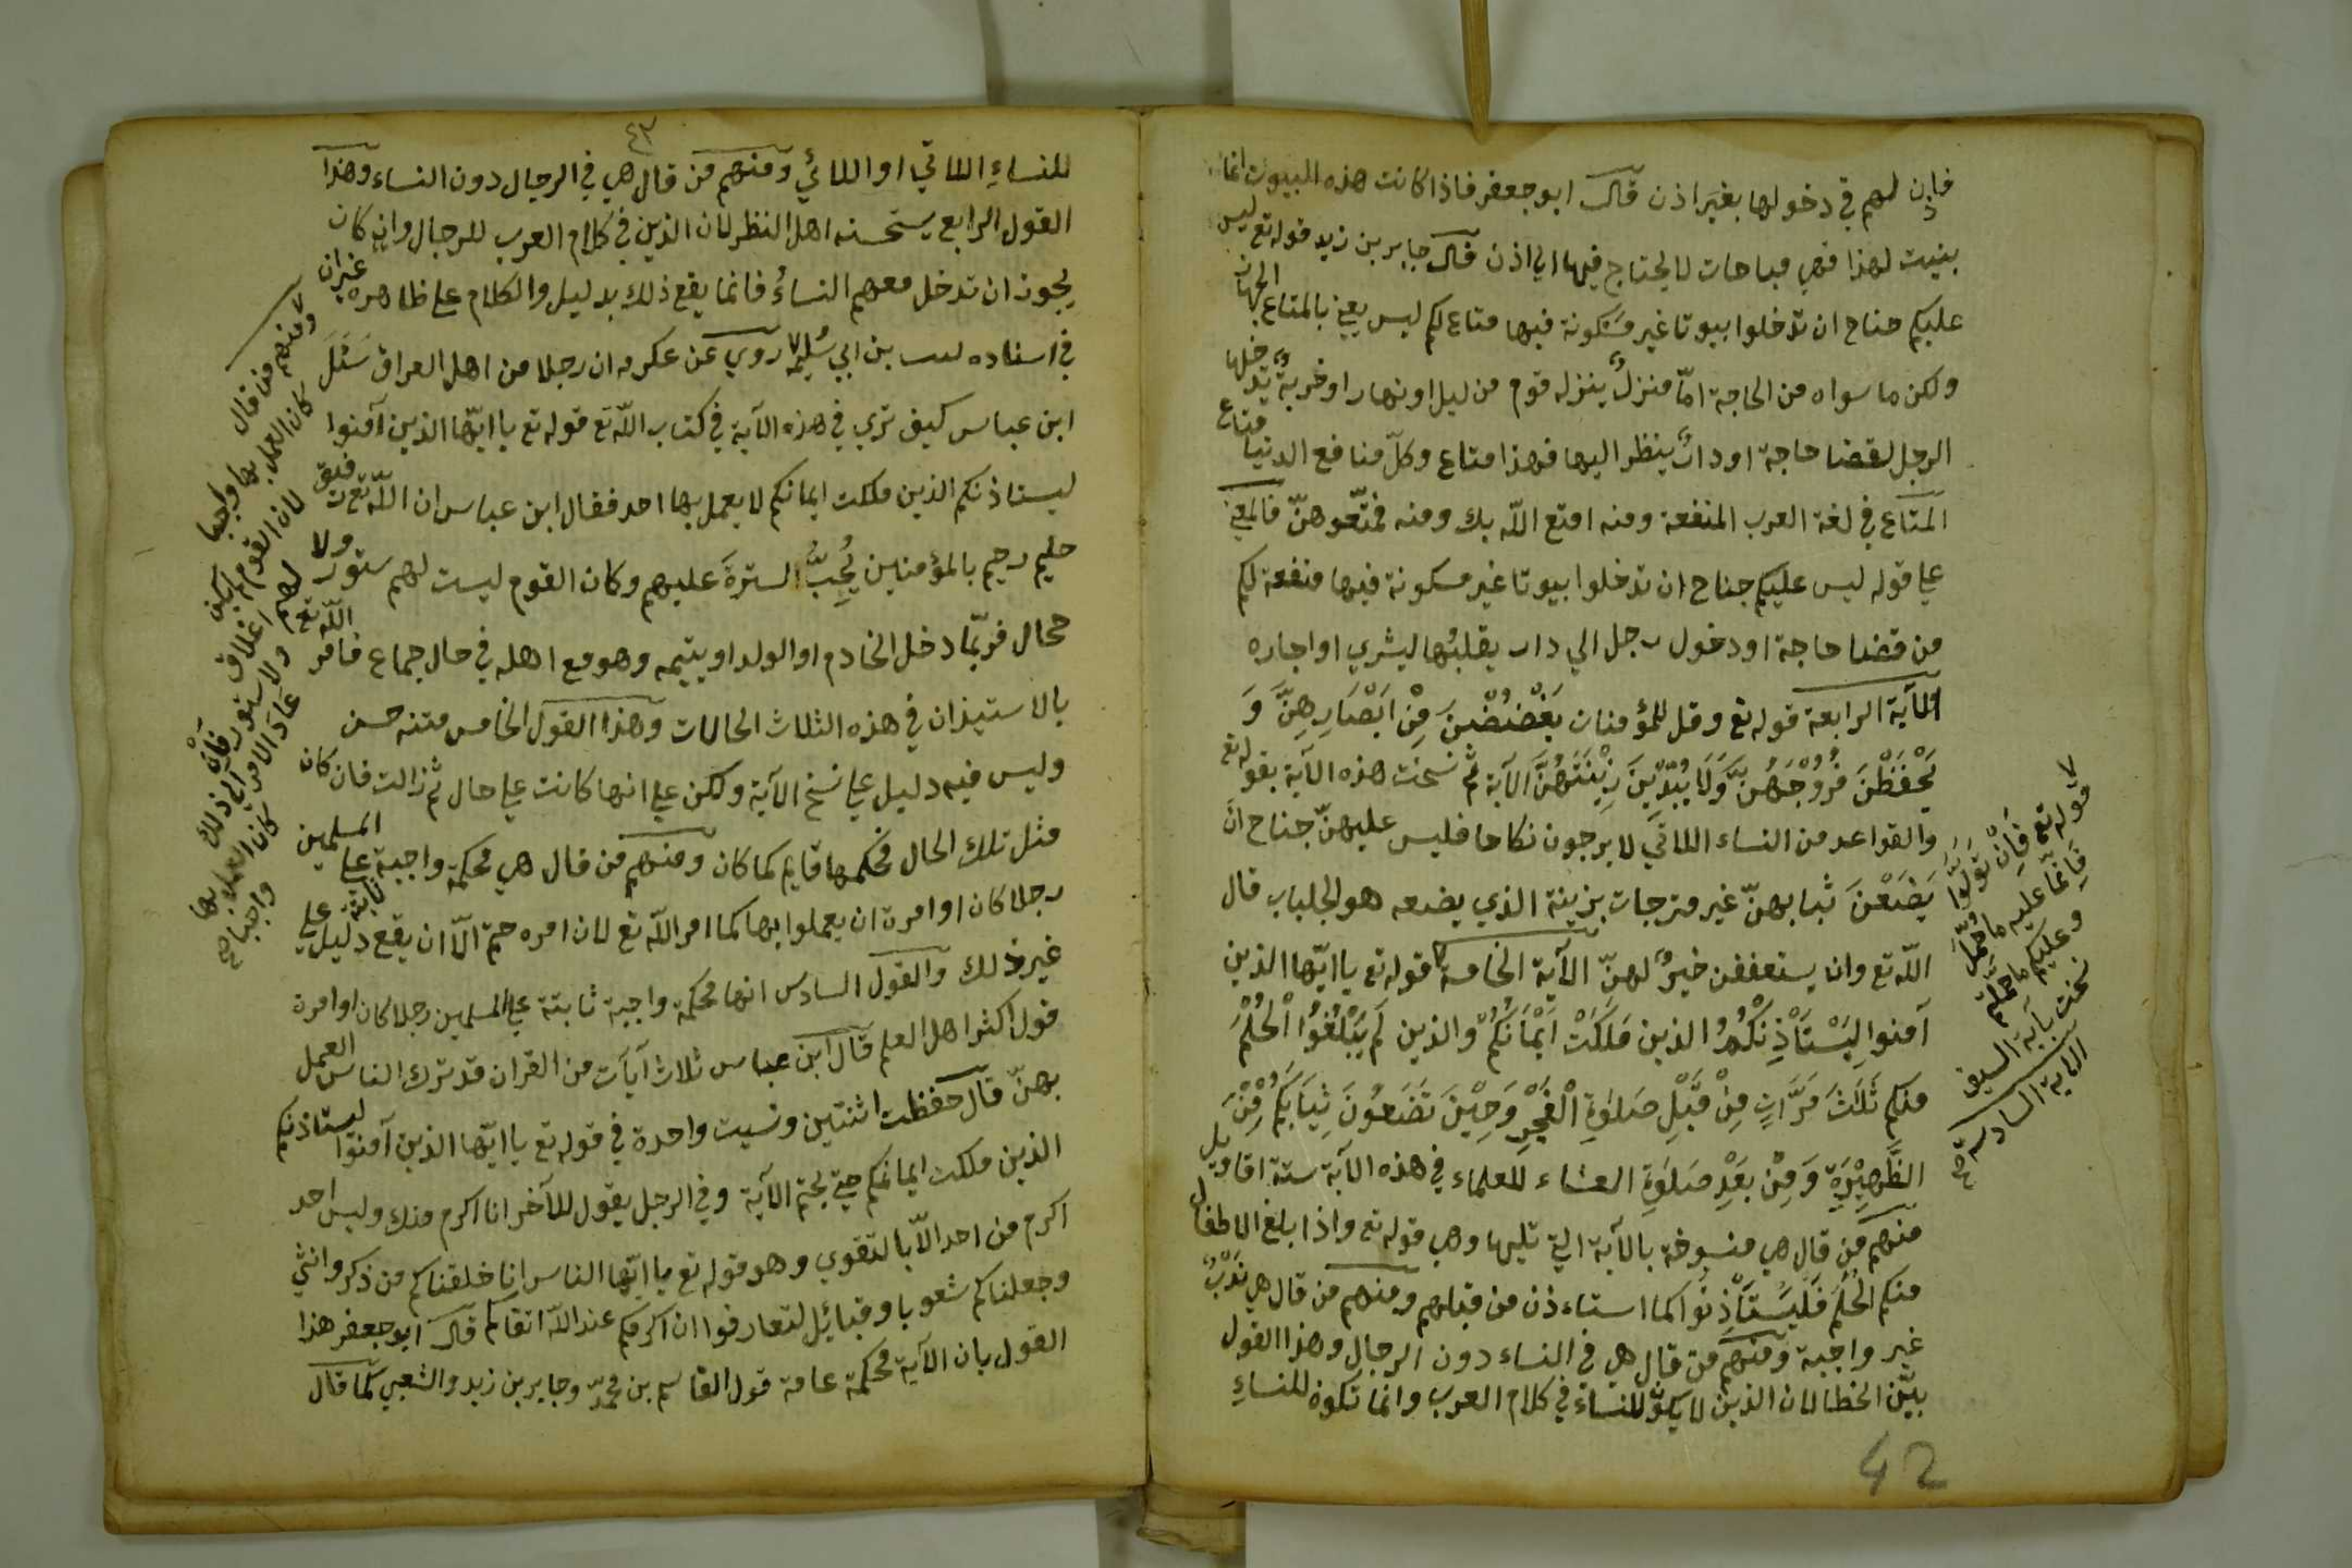 فاذن لهم في دخولها بغير اذن قال ابو جعفر فاذا كانت هذه البيوت انما
بنيت لهذا فهي مباحات لا يحتاج فيها الي اذن قال جابر بن زيد قوله تع ليس
عليكم جناح ان تدخلوا بيوتا غير مسكونة فيها متاع لكم ليس يعني بالمتاع الجهاز
ولكن ما سواه من الحاجة امّا منزلٌ ينزله قوم من ليل او نهار او خربةٌ يدخلها
الرجل لقضا حاجة او دارٌ ينظر اليها فهذا متاع وكلّ منافع الدنيا متاع
المتاع في لغة العرب المنفعة ومنه امتع اللّه بك ومنه فمتّعوهنّ فالمعني
علي قوله ليس عليكم جناح ان تدخلوا بيوتا غير مسكونة فيها منفعة لكم
من قضا حاجة او دخول رجل الي دار يقلبُها ليشري او اجاره
الآية الرابعة قوله تع وقل للمؤمنات يَغْضُضْنَ مِنْ اَبْصَارِهِنَّ وَ
يَحْفَظْنَ فُرُوْجَهُنَّ وَلَا يُبْدِيْنَ زِيْنَتَهُنَّ الآية ثم نسخت هذه الآية بقوله تع
والقواعد من النساء اللاتي لا يرجون نكاحا فليس عليهنّ جناح انْ
يَضَعْنَ ثيابهنّ غير متبرجات بزينة الذي يضعه هو الجلباب قال
اللّه تع وان يستعففن خيرٌ لهنّ الآية الخامسة قوله تع يا ايّها الذين
آمنوا لِيَسْتَاْذِنْكُمُ الذين مَلَكَتْ اَيْمَانُكُمْ والذين لَمْ يَبْلُغُوُا الْحُلُمَ
منكم ثَلٰثَ مَرَّاتٍ مِنْ قَبْلِ صَلٰوةِ الْفَجْرِ وَحِيْنَ تَضَعُوْنَ ثِيَابَكُمْ مِنَ
الظَّهِيْرَةِ وَمِنْ بَعْدِ صَلٰوةِ العشاء للعلماء في هذه الآية ستة اقاويل
منهم من قال هي منسوخة بالآية التي تليها وهي قوله تع واذا بلغ الاطفال
منكم الْحُلُمَ فَلْيَسْتَاْذِنُوْا كما استاءذن من قبلهم ومنهم من قال هي نَدْبٌ
غير واجبة ومنهم من قال هي في النساء دون الرجال وهذا القول
بيّن الخطا لان الذين لا يكون للنساء في كلام العرب وانما تكون للنساءِ
قوله تع فَاِنْ تَوَلَّوْا
فَاِنّما عليه ما حُمِّلَ
وعليكم ما حُمّلتم
نسخت بآية السيف
الآية السادسة صح
42
٤٣
للنساءِ اللاتي او اللائي ومنهم من قال هي في الرجال دون النساء وهذا
القول الرابع يستحسنه اهل النظر لان الذين في كلام العرب للرجال وان كان
يجوز ان تدخل معهم النساءُ فانما يقع ذلك بدليل والكلام علي ظاهره غير ان
في اسناده ليث بن ابي سُلَيم روي عن عكرمه ان رجلا من اهل العراق سَئَلَ
ابن عباس كيف تري في هذه الآية في كتاب اللّه تع قوله تع يا ايّها الذين آمنوا
ليستاذنكم الذين ملكت ايمانكم لا يعمل بها احد فقال ابن عباس ان اللّه تع رفيق
حليم رحيم بالمؤمنين يُحِبُّ السترةَ عليهم وكان القوم ليست لهم ستور ولا
حجال فربّما دخل الخادم او الولد او يتيمه وهو مع اهله في حال جماع فامر اللّه تع
بالاستيذان في هذه الثلاث الحالات وهذا القول الخامس متنه حسن
وليس فيه دليل علي نسخ الآية ولكن علي انها كانت علي حال ثم زالت فان كان
مثل تلك الحال فحكمها قايم كما كان ومنهم من قال هي محكمة واجبة ثابتة علي المسلمين
رجلا كان او امرة ان يعملوا بها كما امر اللّه تع لان امره حتم الّا ان يقع دليل علي
غير ذلك والقول السادس انها محكمة واجبة ثابتة علي المسلمين رجلا كان او امرة
قول اكثر اهل العلم قال ابن عباس ثلاث آيات من القران قد ترك الناس العمل
بهنّ قال حفظت اثنتين ونسيت واحدة في قوله تع يا ايّها الذين آمنوا ليستاذنكم
الذين ملكت ايمانكم حتي يختم الآية وفي الرجل يقول للآخر انا اكرم منك وليس احد
اكرم من احد الّا بالتقوي وهو قوله تع يا ايّها الناس انا خلقناكم من ذكر وانثي
وجعلناكم شعوبا وقبائل لتعارفوا ان اكرمكم عند اللّه اتقاكم قال ابو جعفر هذا
القول بان الآية محكمة عامة قول القاسم بن محمّد وجابر بن زيد والشعبي كما قال
ومنهم من قال
كان العمل بها واجبا
لان القوم لم يكن
لهم اغلاق
ولا ستور فَاِن
عاد الامر الي ذلك
كان العمل بها
واجبا صح